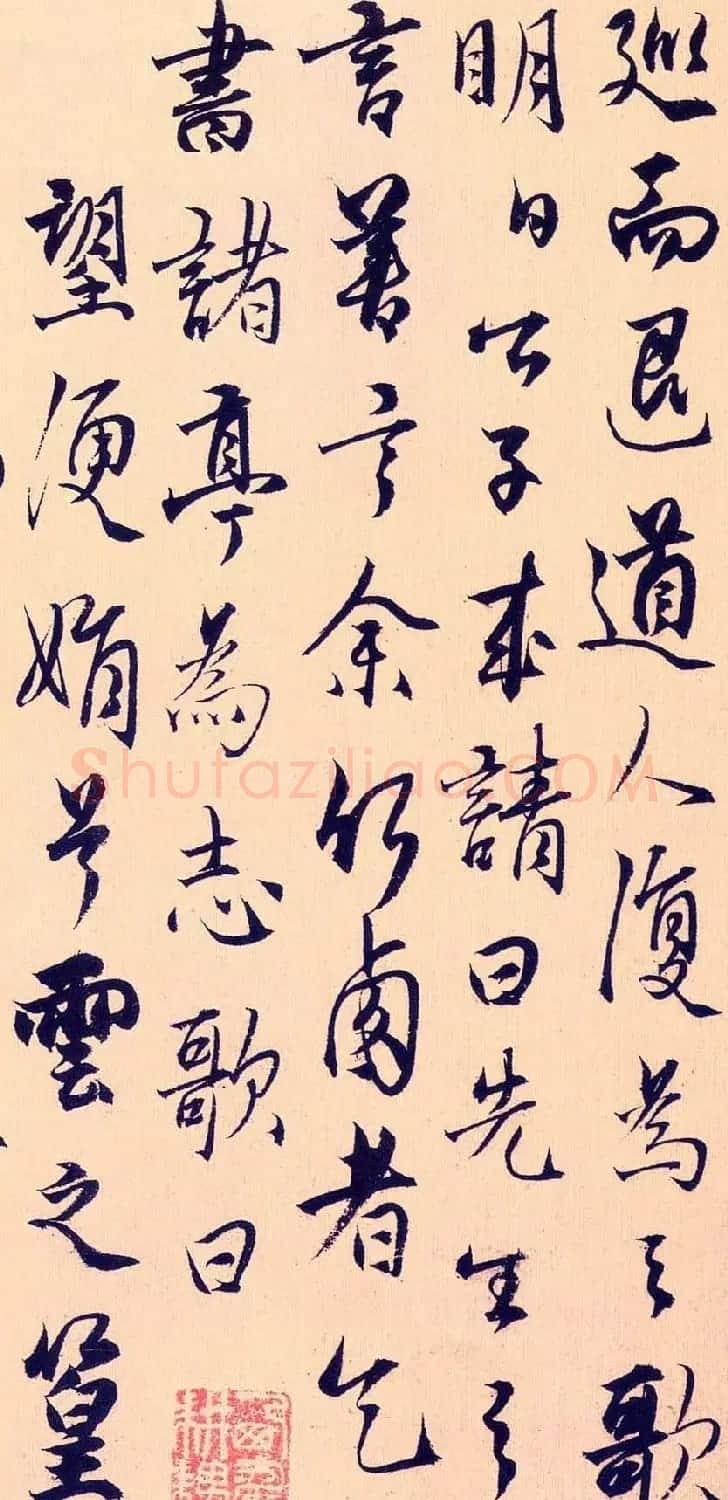 巡而退道人復為之歌
明日公子来請曰先生之
言善言余竹西者乞
書諸亭為志歌曰
望便娟兮雲之篁
Shufaziliao.COM